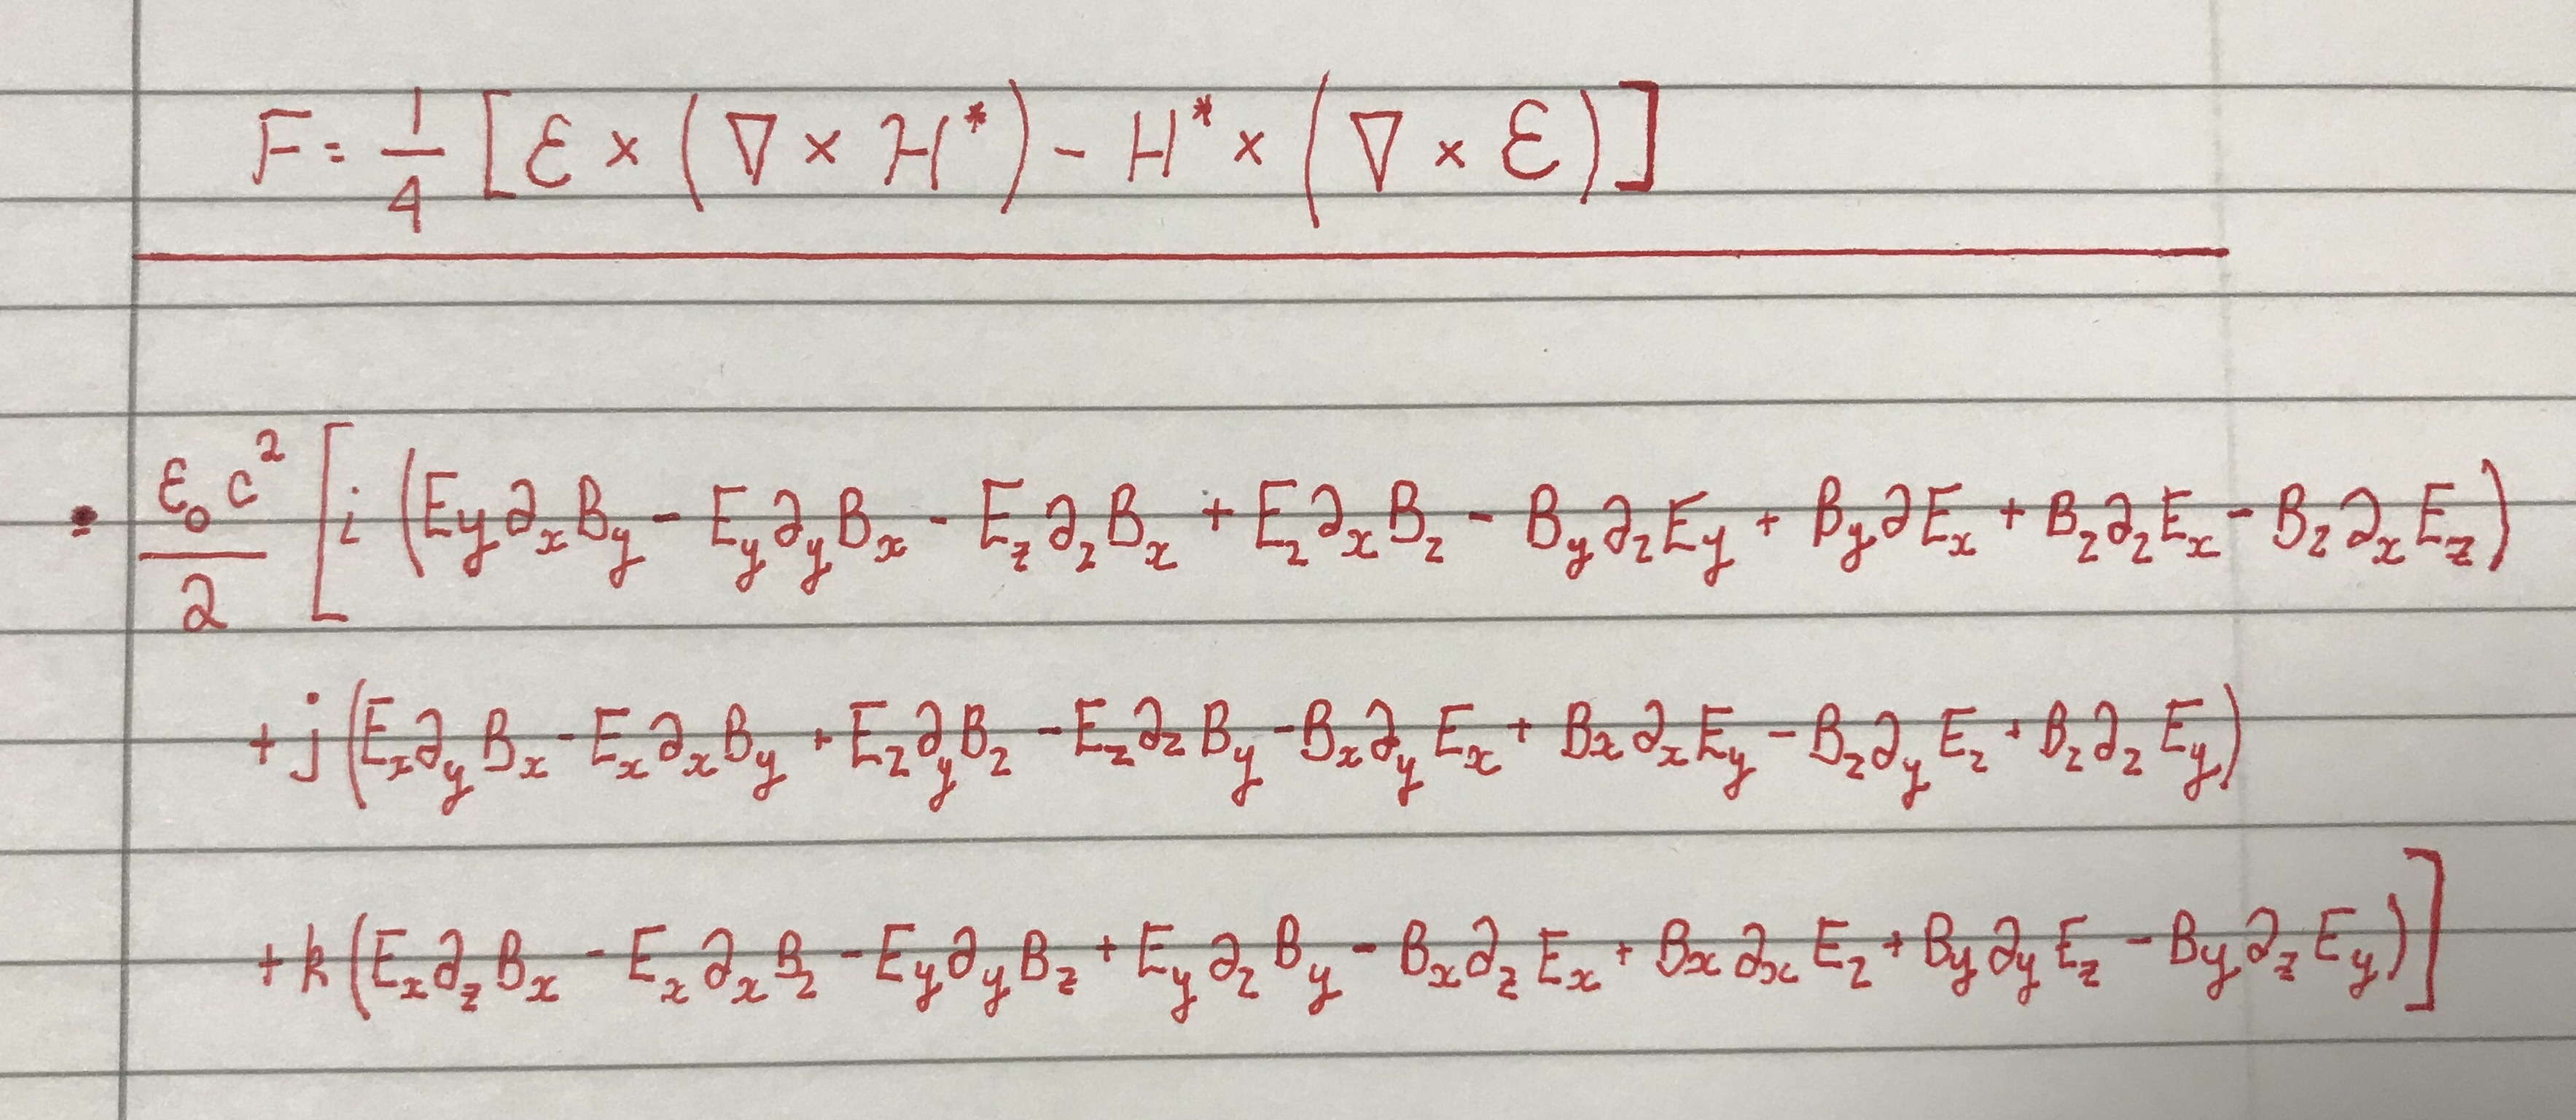 F = 1/4 [ℰ × (∇ × H*) - H* × (∇ × ℰ)]
• ε₀c²/2 [i (E_y ∂_x B_y - E_y ∂_y B_x - E_z ∂_z B_x + E_z ∂_x B_z - B_y ∂_z E_y + B_y ∂ E_x + B_z ∂_z E_x - B_z ∂_x E_z)
+ j (E_x ∂_y B_x - E_x ∂_x B_y + E_z ∂_y B_z - E_z ∂_z B_y - B_x ∂_y E_x + B_x ∂_x E_y - B_z ∂_y E_z + B_z ∂_z E_y)
+ k (E_x ∂_z B_x - E_x ∂_x B_z - E_y ∂_y B_z + E_y ∂_z B_y - B_x ∂_z E_x + B_x ∂_x E_z + B_y ∂_y E_z - B_y ∂_z E_y)]